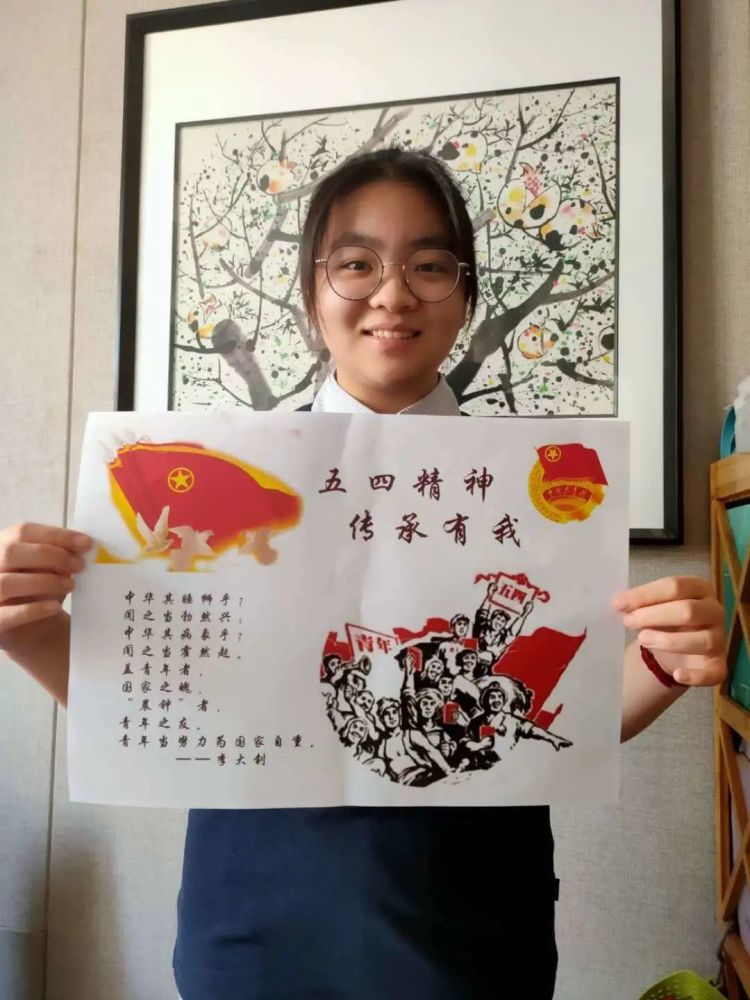 五四精神
传承有我
中华其睡狮乎?
闻之当勃然兴;
中华其病象乎?
闻之当霍然起。
盖青年者,
国家之魂,
“晨钟”者,
青年之友。
青年当努力为国家自重。
——李大钊
五四
青年